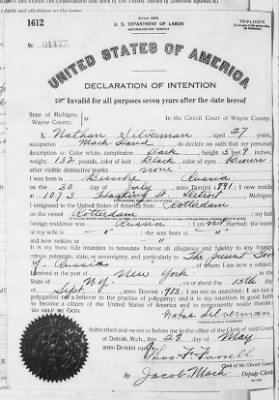 1612
U. S. DEPARTMENT OF LABOR
NATURALIZATION SERVICE
TRIPLICATE
No.
UNITED STATES OF AMERICA
DECLARATION OF INTENTION
Invalid for all purposes seven years after the date hereof
State of Michigan,
Wayne County,
In the Circuit Court of Wayne County.
I, Nathan Silverman, aged 27 years,
occupation Mach hand, do declare on oath that my personal
description is: Color white, complexion Dark, height 5 feet inches,
weight 132 pounds, color of hair Black, color of eyes Brown
other visible distinctive marks none
I was born in Russia
on the 30 day of July, anno Domini 1891; I now reside
at 1073 Hastings St., Detroit, Michigan.
I emigrated to the United States of America from Rotterdam
on the vessel Rotterdam; my last
foreign residence was Russia; I am not married; the name
of my wife is
and now resides at
It is my bona fide intention to renounce forever all allegiance and fidelity to any foreign
prince, potentate, state, or sovereignty, and particularly to The present Gov
of Russia
I arrived at the port of New York, in the
State of N.Y., on or about the 15th day
of Sept, anno Domini 1913; I am not an anarchist; I am not a
polygamist nor a believer in the practice of polygamy; and it is my intention in good faith
to become a citizen of the United States of America and to permanently reside therein:
SO HELP ME GOD.
Silverman
Subscribed and sworn to before me in the office of the Clerk of said Court
at Detroit, Mich., this 28 day of May
anno Domini
Thos F. Farrell
Clerk of the Circuit Court.
By Jacob Mach, Deputy Clerk